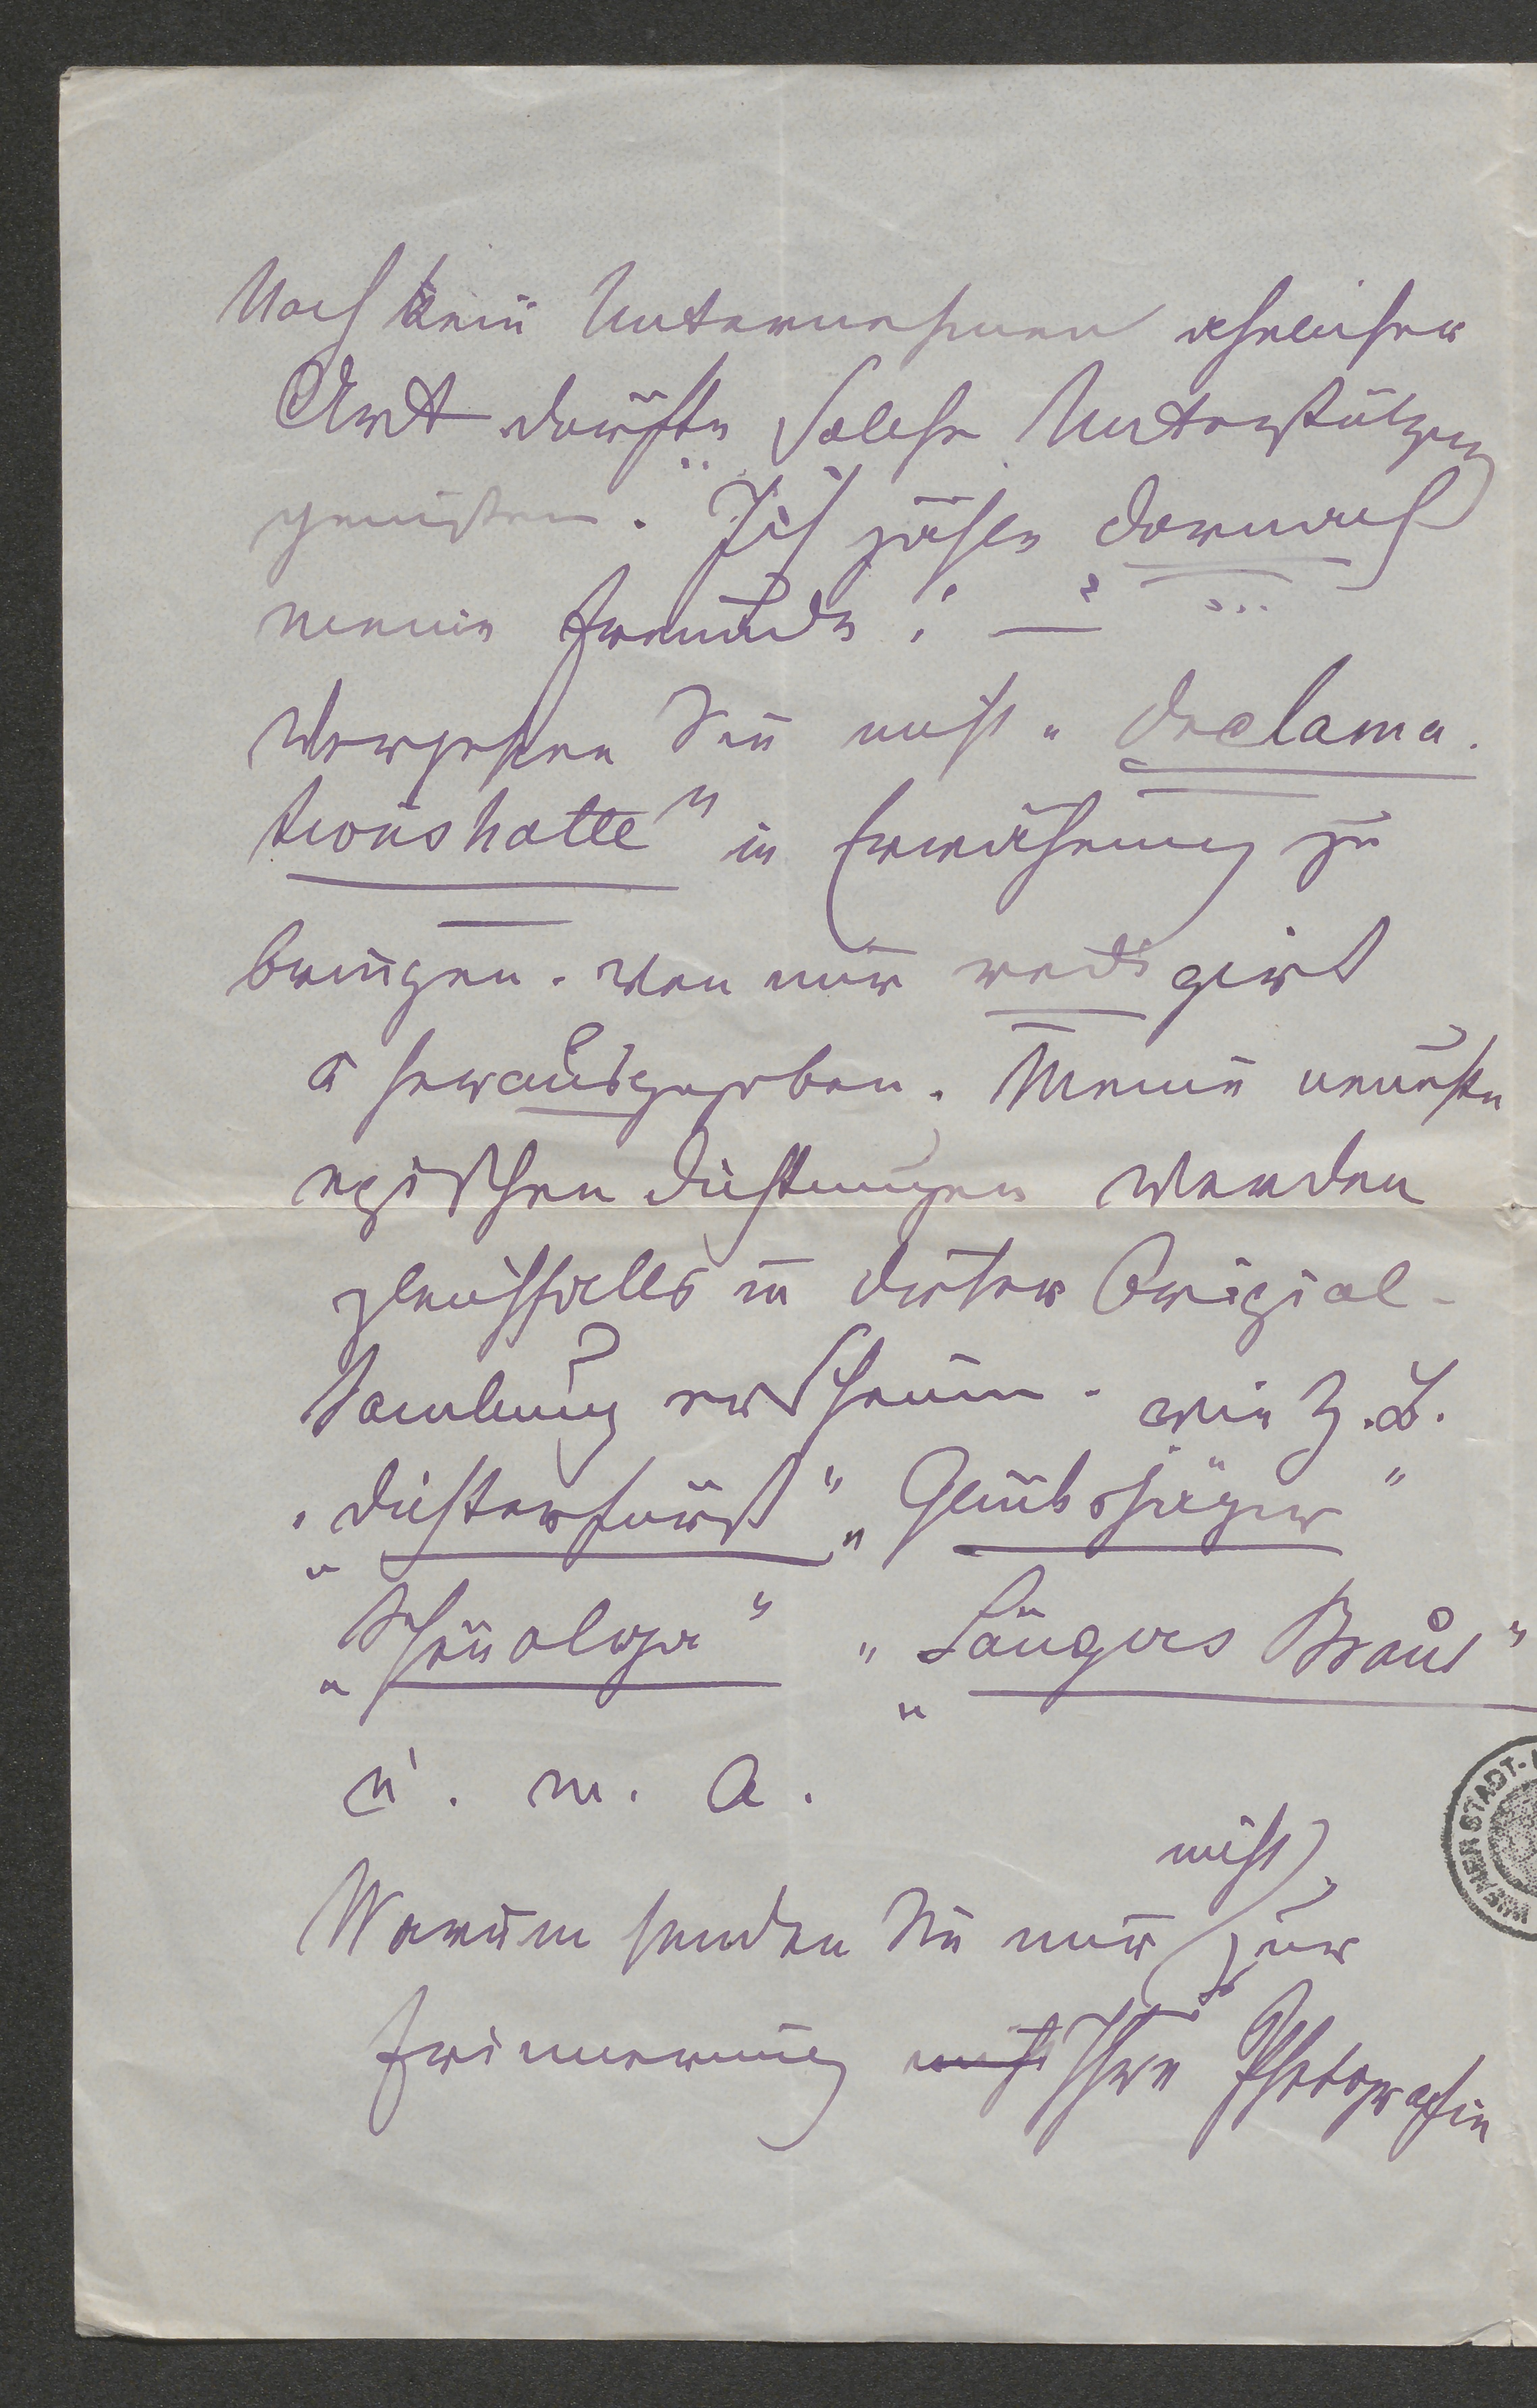 Noch kein Unternehmen ähnlicher
Art dürfte solche Unterstützung
genießen. Ich zähle darnach
meine Freunde! —
Vergessen Sie nicht „Declama-
tionshalle" in Erwähnung zu
bringen. von mir redigirt
u herausgegeben. Meine neueste
epischen Dichtungen werden
gleichfalls in dieser Origial-
Samlung erscheinen. wie z. B.
„Dichterfürst" „Glücksjäger"
„Schön Olga" „Sängers Braut"
u. m. a.
Warum senden Sie mir nicht zur
Erinnerung nicht Ihre Photografie
WIENER STADT-